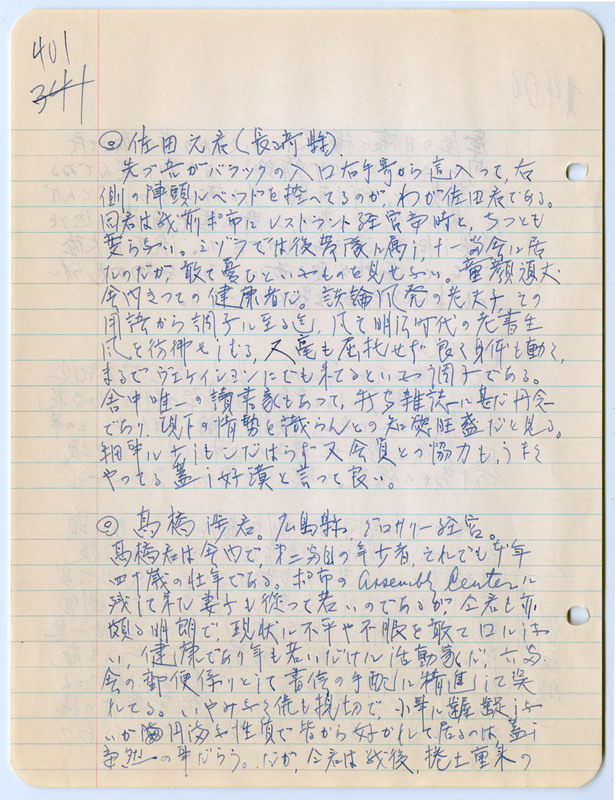 401
344
◎ 佐田元君（長崎縣）
先づ吾がバラックの入口右手寄から這入って、右
側の陣頭にベッドを控へてるのが、わが佐田君である。
同君は戦前ポ市にレストラント経営当時と、ちっとも
変らない。ミゾラでは後発隊に属し、十一番舎に居
たのだが、敢て憂ひといふものを見せない。童顔
舎内きっての健康者だ。談論風発の老夫子、その
用語から調子に至る迄、凡て明治時代の老書生
風を彷彿せしむる、又毫も屈托せず良く身体も動く、
まるでヴェケイションにでも来てるといった調子である。
舎中唯一の讀書家もあって、新聞雑誌に甚だ丹念
であり、現下の情勢を識らんとの知欲旺盛だと見る。
細事にちもこだはらず又会員との協力も、うまく
やってる蓋し好漢と言って良い。
◎ 髙橋渉君。広島縣、グロサリー経営。
髙橋君は舎内で、第二番目の年少者、それでも当年
四十歳の壮年である。ポ市の Assembly Center に
残して来た妻子も従って若いのであるが、仝君も亦
頗る明朗で、現状に不平や不服を敢て口にしな
い、健康であり年も若いだけに活動家だ、六番
舎の郵便係りとして書信の手配に精進して呉
れてる。いやみなく他も親切で、小事に齷齪しな
いが円満な性質で皆から好かれて居るのは蓋し
当然の事だらう。だが、仝君は戦後、捲土重来の